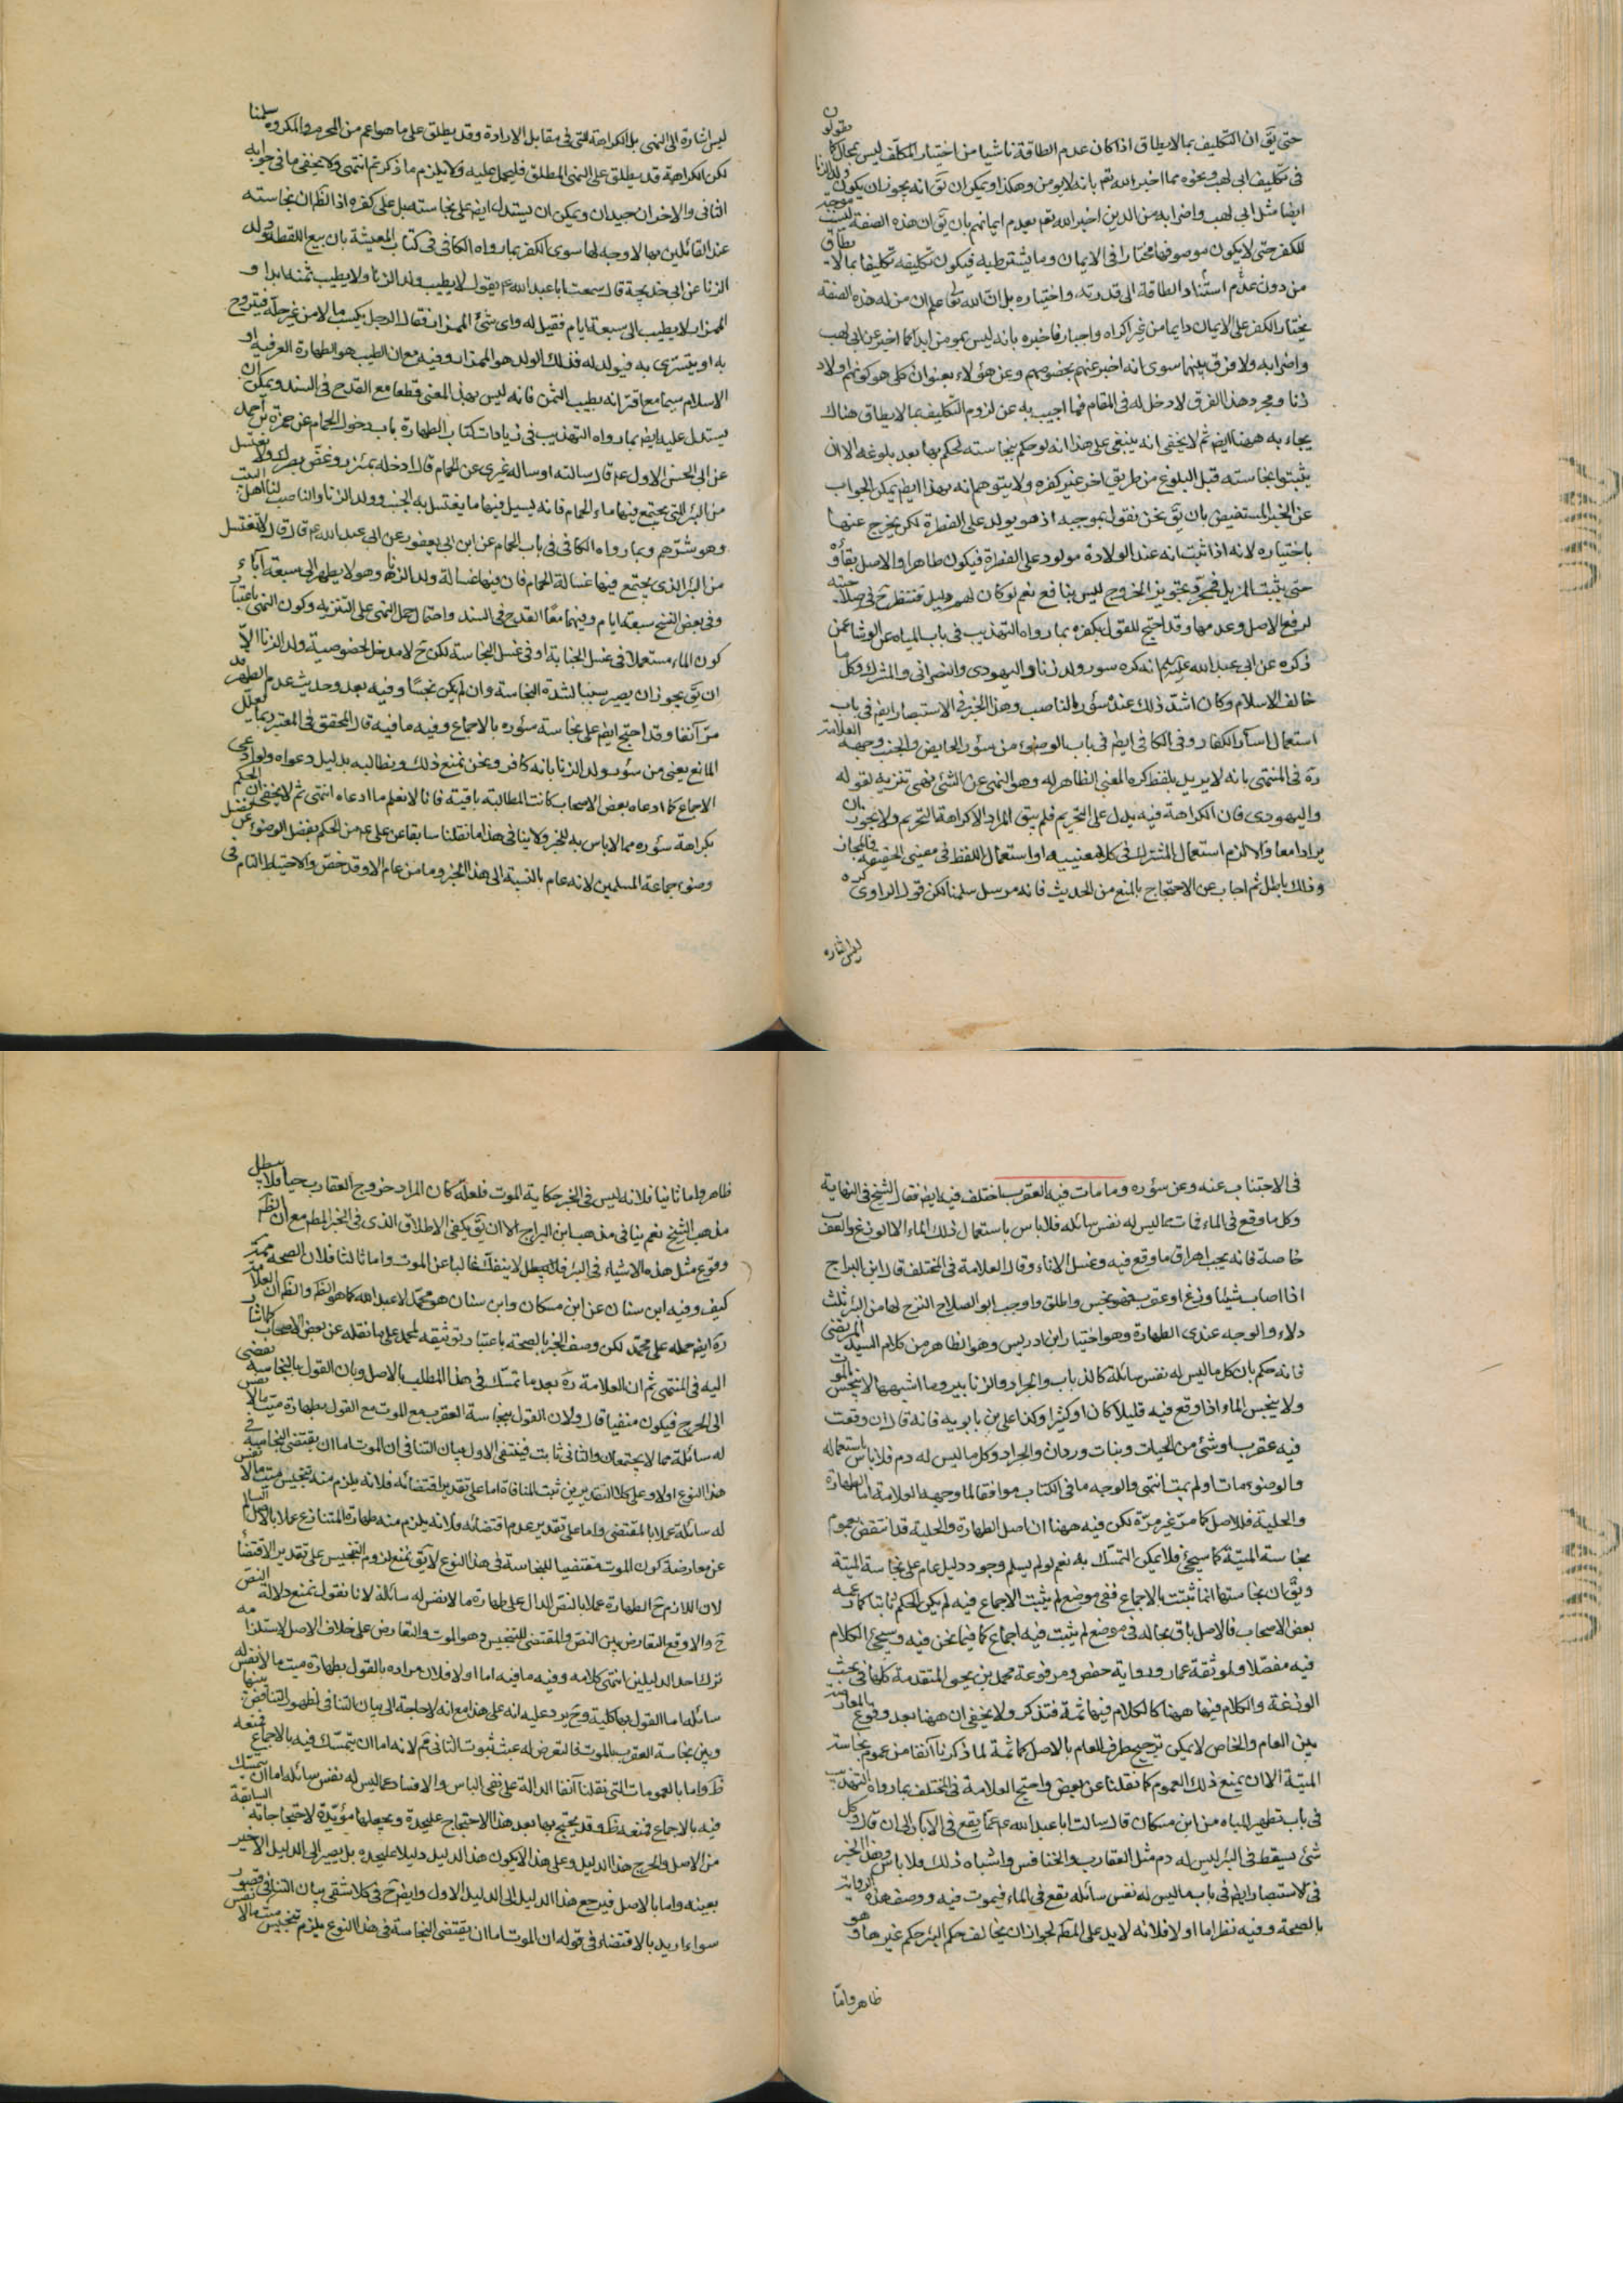 حتى يق ان التكليف بما لا يطاق اذا كان عدم الطاقة ناشيا من اختيار المكلف ليس بمحال كما يقولون
فى تكليف ابى لهب ونحوه مما اخبر الله تعم بانه لا يؤمن وهكذا ويمكن ان يق انه يجوز ان يكون
ايضا مثل ابى لهب واضرابه من الذين اخبر الله تعم بعدم ايمانهم بان يق ان هذه الصفة ليست موجبة
للكفر حتى لا يكون موصوفها مختارا فى الايمان وما يشترط به فيكون تكليفه تكليفا بما لا يطاق
من دون عدم استناد الطاقة الى قدرته واختياره بل ان الله تعا علم ان من له هذه الصفة
يختار الكفر على الايمان دايما من غير اكراه واجبار فاخبره بانه ليس بمومن ابدا كما اخبر عن ابى لهب
واضرابه ولا فرق بينهما سوى انه اخبر عنهم بخصوصهم وعن هؤلاء بعنوان كلى هو كونهم اولاد
زنا ومجرد هذا الفرق لا دخل له فى المقام فما اجيب به عن لزوم التكليف بما لا يطاق هناك
يجاء به ههنا ايضا ثم لا يخفى انه ينبغى على هذا انه لو حكم بنجاسته لحكم بها بعد بلوغه الا ان
يثبتوا نجاسته قبل البلوغ من طريق اخر غير كفره ولا يتوهم انه بهذا ايضا يمكن الجواب
عن الخبر المستفيض بان يق نحن نقول بموجبه اذ هو يولد على الفطرة لكن يخرج عنها
باختياره لانه اذا ثبت انه عند الولادة مولود على الفطرة فيكون طاهرا والاصل بقاؤه
حتى يثبت المزيل فمجرد تجويز الخروج ليس بنافع نعم لو كان لهم دليل فتنظر ح فى صلاحيته
لرفع الاصل وعدمها وقد احتج للقول بكفره بما رواه التهذيب فى باب المياه عن الوشا عمن
ذكره عن ابى عبد الله عليه السلم انه كره سور ولد زنا واليهودى والنصرانى والمشرك وكل ما
خالف الاسلام وكان اشد ذلك عنده سؤر الناصب وهذا الخبر فى الاستبصار ايضا فى باب
استعمال اسآر الكفار وفى الكافى ايضا فى باب الوضوء من سؤر الحايض والجنب وجهه العلامة
ره فى المنتهى بانه لا يريد بلفظ كره المعنى الظاهر له وهو النهى عن الشئ نهى تنزيه لقوله
واليهودى فان الكراهة فيه يدل على التحريم فلم يبق المراد الا كراهة التحريم ولا يجوز ان
يرادا معا والا لزم استعمال المشترك فى كلا معنييه او استعمال اللفظ فى معنيى الحقيقة والمجاز
وذلك باطل ثم اجاب عن الاحتجاج بالمنع من الحديث فانه مرسل سلمنا لكن قول الراوى كره
ليس اشارة
ليس اشارة الى النهى بل الكراهة التى فى مقابل الارادة وقد يطلق على ما هو اعم من المحرم والمكروه سلمنا
لكن الكراهة قد يطلق على النهى المطلق فليحمل عليه ولا يلزم ما ذكرتم انتهى ولا يخفى ما فى جوابه
الثانى والاخران جيدان ويمكن ان يستدل ايضا على نجاسته بل على كفره اذ الظ ان نجاسته
عند القائلين بها لا وجه لها سوى الكفر بما رواه الكافى فى كتاب المعيشة باب بيع اللقطة وولد
الزنا عن ابى خديجة قال سمعت ابا عبد الله ع يقول لا يطيب ولد الزنا ولا يطيب ثمنه ابدا و
الممزار لا يطيب الى سبعة ايام فقيل له واى شئ الممزار فقال الرجل يكسب مالا من غير حله فيتزوج
به او يتسرى به فيولد له فذلك الولد هو الممزار وفيه منع ان الطيب هو الطهارة العرفية او
الاسلام سيما مع اقترانه بطيب الثمن فانه ليس بهذا المعنى قطعا مع القدح فى السند ويمكن ان
يستدل عليه ايضا بما رواه التهذيب فى زيادات كتاب الطهارة باب دخول الحمام عن حمزة بن احمد
عن ابى الحسن الاول ع قال سالته او ساله غيرى عن الحمام قال ادخله بمئزر وغض بصرك ولا تغتسل
من البئر التى يجتمع فيها ماء الحمام فانه يسيل فيها ما يغتسل به الجنب وولد الزنا والناصب لنا اهل البيت
وهو شرهم وبما رواه الكافى فى باب الحمام عن ابن ابى يعفور عن ابى عبد الله ع قال قال لا تغتسل
من البئر الذى يجتمع فيها غسالة الحمام فان فيها غسالة ولد الزنا وهو لا يطهر الى سبعة آباء
وفى بعض النسخ سبعة ايام وفيهما معا القدح فى السند واحتمال حمل النهى على التنزيه وكون النهى باعتبار
كون الماء مستعملا فى غسل الجنابة او فى غسل النجاسة لكن ح لا مدخل لخصوصية ولد الزنا الا
ان يق يجوز ان يصير سببا لشدة النجاسة وان لم يكن نجسا وفيه بعد وحديث عدم الطهر قد
مر آنفا وقد احتج ايضا على نجاسة سؤره بالاجماع وفيه ما فيه قال المحقق فى المعتبر ربما يعلل
المانع يعنى من سؤر ولد الزنا بانه كافر ونحن نمنع ذلك ونطالبه بدليل دعواه ولو ادعى
الاجماع كما ادعاه بعض الاصحاب كانت المطالبة باقية فانا لا نعلم ما ادعاه انتهى ثم لا يخفى ان الحكم
بكراهة سؤره مما لا باس به للخبر ولا ينافى هذا ما نقلنا سابقا عن على ع من الحكم بفضل الوضوء من فضل
وضوء جماعة المسلمين لانه عام بالنسبة الى هذا الخبر وما من عام الا وقد خص والاحتياط التام فى
فى الاجتناب عنه وعن سؤره وما مات فيه العقرب اختلف فيه ايضا فقال الشيخ فى النهاية
وكل ما وقع فى الماء فمات مما ليس له نفس سائله فلا باس باستعمال ذلك الماء الا الوزغ والعقرب
خاصة فانه يجب اهراق ما وقع فيه وغسل الاناء وقال العلامة فى المختلف قال ابن البراج
اذا اصاب شيئا وزغ او عقرب فهو نجس واطلق واوجب ابو الصلاح النزح لها من البئر ثلث
دلاء والوجه عندى الطهارة وهو اختيار ابن ادريس وهو الظاهر من كلام السيد المرتضى
فانه حكم بان كل ما ليس له نفس سائلة كالذباب والجراد والزنابير وما اشبهها لا ينجس بالموت
ولا ينجس الماء اذا وقع فيه قليلا كان او كثيرا وكذا على بن بابويه فانه قال ان وقعت
فيه عقرب او شئ من الخنافس وبنات وردان والجراد وكل ما ليس له دم فلا باس باستعماله
والوضوء مات او لم يمت انتهى والوجه ما فى الكتاب موافقا لما وجهه العلامة اما الطهارة
والحلية فللاصل كما مر غير مرة لكن فيه ههنا ان اصل الطهارة والحلية قد انتقض بعموم
نجاسة الميتة كما سيجئ فلا يمكن التمسك به نعم لو لم يسلم وجود دليل عام على نجاسة الميتة
ويق ان نجاستها انما ثبتت بالاجماع ففى موضع لم يثبت الاجماع فيه لم يكن الحكم ثابتا كما زعمه
بعض الاصحاب فالاصل باق بحاله فى موضع لم يثبت فيه اجماع كما فيما نحن فيه وسيجئ الكلام
فيه مفصلا ولموثقة عمار ورواية حفص ومرفوعة محمد بن يحيى المتقدمة كلها فى بحث
الوزغة والكلام فيها ههنا كالكلام فيها ثمة فتذكر ولا يخفى ان ههنا بعد وقوع التعارض
بين العام والخاص لا يمكن ترجيح طرف العام بالاصل كما ثمة لما ذكرنا آنفا من عموم نجاسة
الميتة الا ان يمنع ذلك العموم كما نقلنا عن بعض واحتج العلامة فى المختلف بما رواه التهذيب
فى باب تطهير المياه من ابن مسكان قال سالت ابا عبد الله ع عما يقع فى الآبار الى ان قال وكل
شئ يسقط فى البئر ليس له دم مثل العقارب والخنافس واشباه ذلك فلا باس وهذا الخبر
فى الاستبصار ايضا فى باب ما ليس له نفس سائله يقع فى الماء فيموت فيه ووصف هذه الرواية
بالصحة وفيه نظر اما اولا فلانه لا يدل على المط لجواز ان يخالف حكم البئر حكم غيرها وهو
ظاهر واما
ظاهر واما ثانيا فلانه ليس فى الخبر حكاية الموت فلعله كان المراد خروج العقارب حيا فلا يبطل
مذهب الشيخ نعم ينافى مذهب ابن البراج الا ان يق يكفى الاطلاق الذى فى الخبر للمط مع ان الظ
وقوع مثل هذه الاشياء فى البئر لا ينفك غالبا عن الموت واما ثالثا فلان الصحة ممنوعة
كيف وفيه ابن سنان عن ابن مسكان وابن سنان هو محمد لا عبد الله كما هو الظ والظ ان العلامة
ره ايضا حمله على محمد لكن وصف الخبر بالصحة باعتبار توثيقه لمحمد على ما نقله عن بعض الاصحاب كما اشار
اليه فى المنتهى ثم ان العلامة ره بعد ما تمسك فى هذا المطلب بالاصل وبان القول بالنجاسة يفضى
الى الحرج فيكون منفيا قال ولان القول بنجاسة العقرب مع الموت مع القول بطهارة ميتة ما لا نفس
له سائلة مما لا يجتمعان والثانى ثابت فينتفى الاول بيان التنافى ان الموت اما ان يقتضى النجاسة فى
هذا النوع او لا وعلى كلا التقديرين ثبت المنافاة اما على تقدير اقتضائه فلانه يلزم منه تنجيس ميت ما لا نفس
له سائلة عملا بالمقتضى واما على تقدير عدم اقتضائه فلانه يلزم منه طهارة المتنازع عملا بالاصل السالم
عن معارضة كون الموت مقتضيا للنجاسة فى هذا النوع لا يق نمنع لزوم التنجيس على تقدير الاقتضاء
لان اللازم ح الطهارة عملا بالنص الدال على طهارة ما لا نفس له سائلة لانا نقول نمنع دلالة النص
ح والا وقع التعارض بين النص والمقتضى للتنجيس وهو الموت والتعارض على خلاف الاصل لاستلزامه
ترك احد الدليلين انتهى كلامه وفيه ما فيه اما اولا فلان مراده بالقول بطهارة ميت ما لا نفس له
سائله اما القول بها كلية وح يرد عليه انه على هذا مع انه لا حاجة الى بيان التنافى لظهور التناقض بينها
وبين نجاسة العقرب بالموت فالتعرض له عبث ثبوت الثانى ثم لانه اما ان يتمسك فيه بالاجماع فمنعه
ظ واما بالعمومات التى نقلنا آنفا الدالة على نفى الباس والافساد عما ليس له نفس سائله اما ان يتمسك
فيه بالاجماع فمنعه ظ وقد يحتج بها بعد هذا الاحتجاج عليحدة ويجعلها مؤيدة لاحتجاجاته السابقة
من الاصل والحرج هذا الدليل وعلى هذا لا يكون هذا الدليل دليلا عليحده بل يصير الى الدليل الاخير
بعينه واما بالاصل فيرجع هذا الدليل الى الدليل الاول وايضا ح فى كلا شقى بيان التنافى قصور
سواء اريد بالاقتضاء فى قوله ان الموت اما ان يقتضى النجاسة فى هذا النوع يلزم تنجيس ميت ما لا نفس